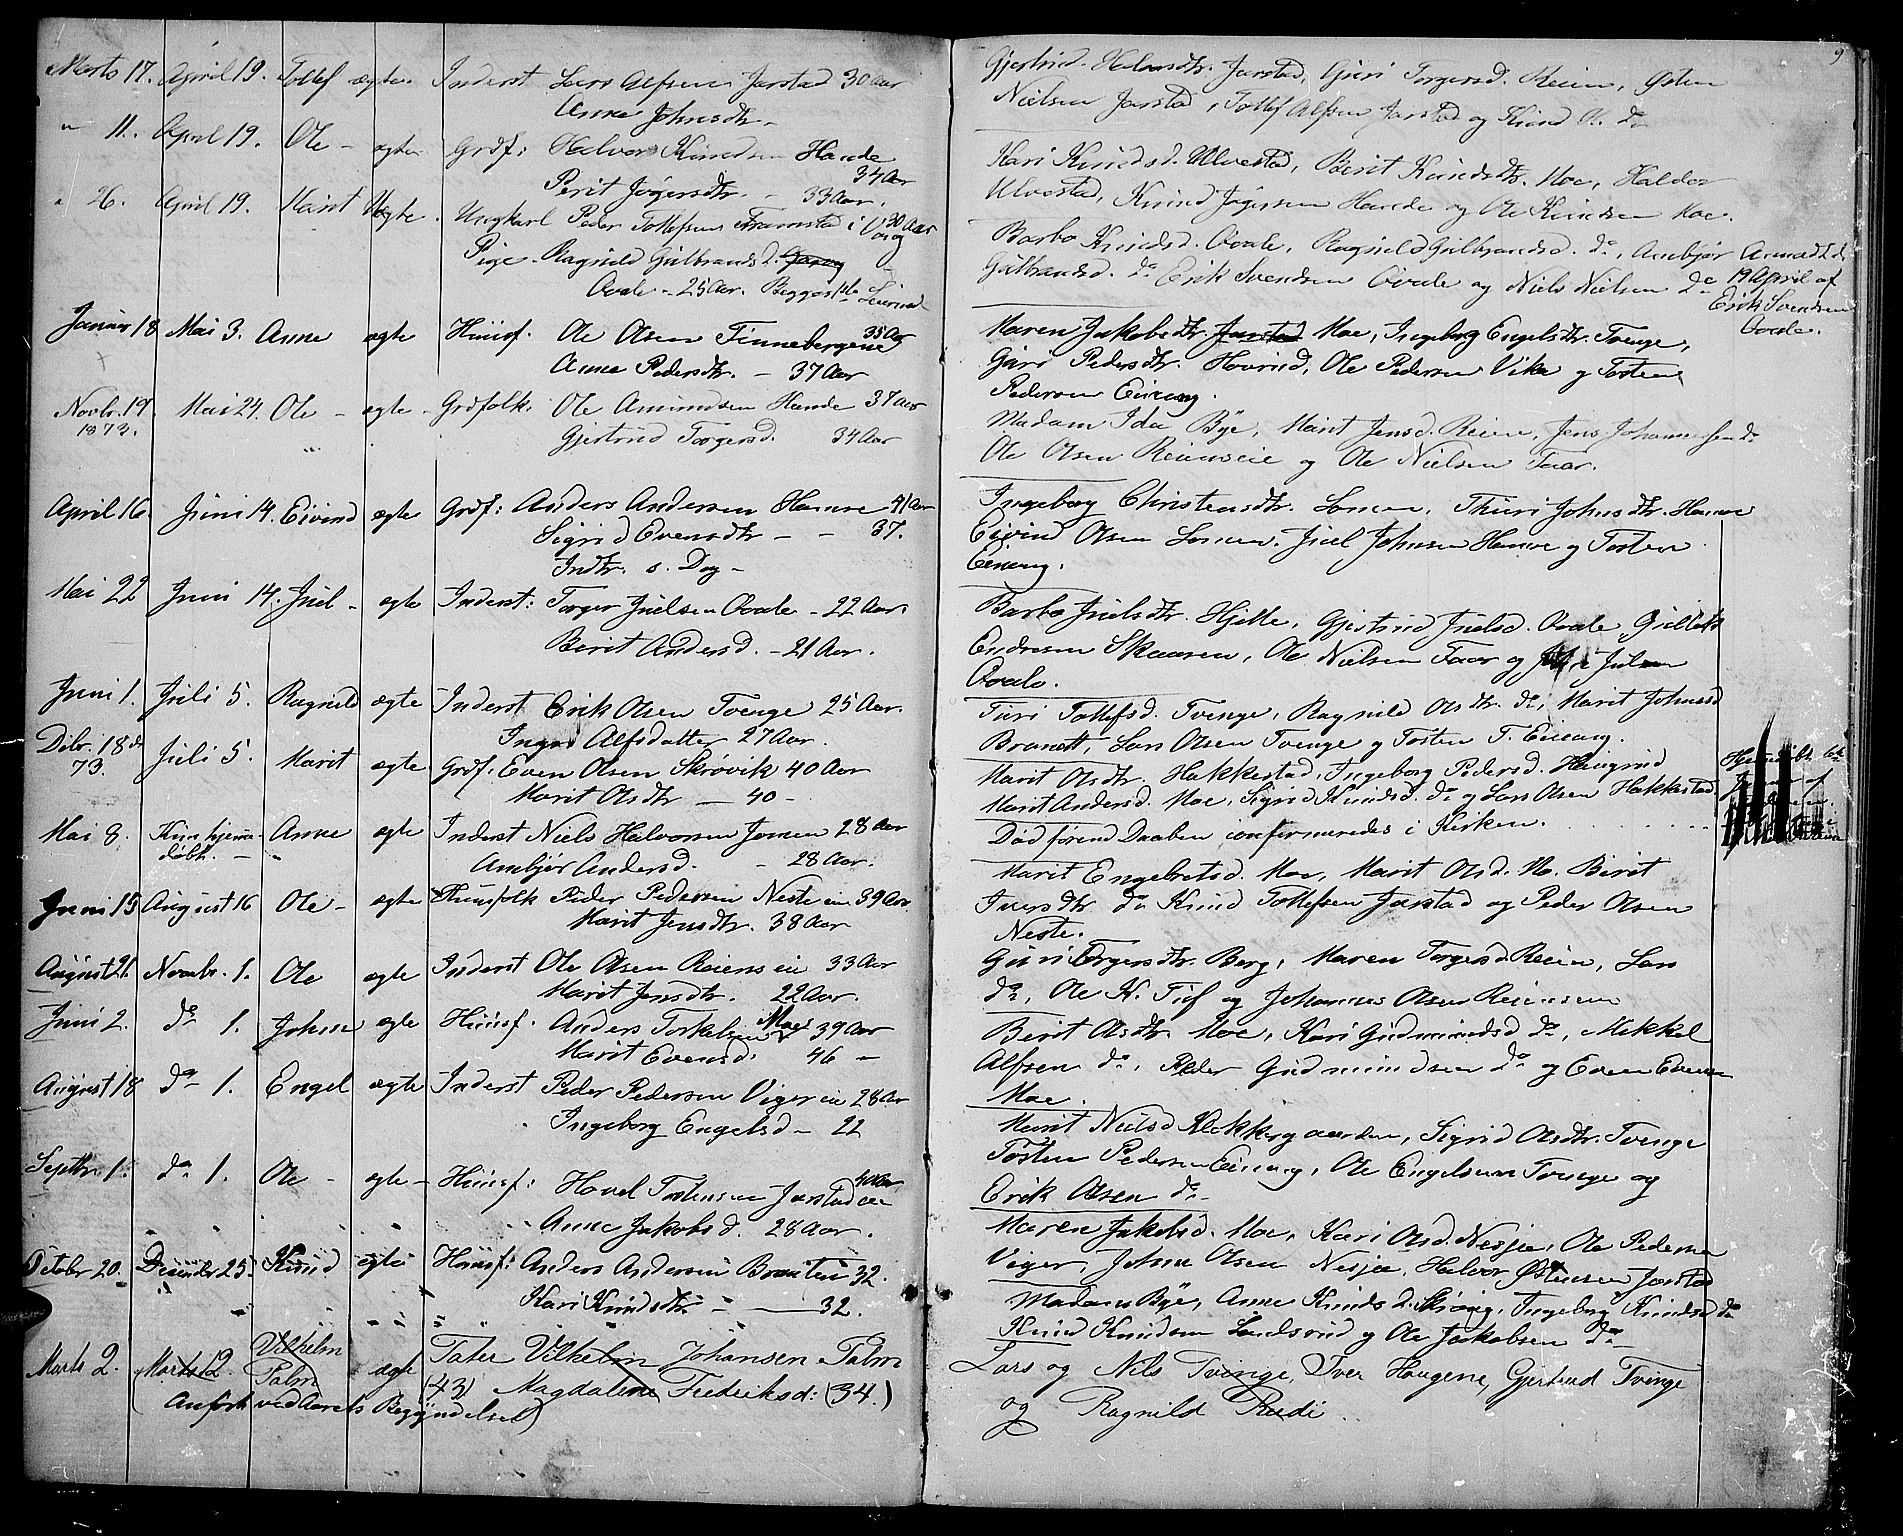 Marts 17. April 19. Tollef ægte. Inderst Lars Alfsen Jarstad 30 Aar
Anne Johnsdtr.
" 11. April 19. Ole - ægte Grdf: Halvor Knudsen Hande 34 Aar
Berit Jøgersdtr. - 33 Aar.
" 26. April 19. Marit Uægte. Ungkarl Peder Tollefsen Framstad i Vang 30 Aar
Pige. Ragnild Gulbrandsd.
Ovale - 25 Aar. Begges 1ste Leiermaal
Januar 18 Mai 3. Anne ægte Huusf. Ole Olsen Finnebergene 35 Aar
Anne Pedersdtr. - 37 Aar
Novbr. 19 1873. Mai 24. Ole - ægte - Grdfolk. Ole Amundsen Hande 37 Aar
Gjertrud Torgersd. 34 Aar
April 16. Juni 14. Eivind ægte Grdf: Anders Andersen Hamre 41 Aar
Sigrid Evensdtr - - 37.
Indtr. s. Dag -
Mai 22 Juni 14. Juel - ægte Inderst: Torger Juelsen Ovale - 22 Aar.
Berit Andersd. - 21 Aar.
Juni 1. Juli 5. Ragnild ægte Inderst Erik Olsen Tvenge 25 Aar.
Ingrid Alfsdatter 27 Aar.
Dcbr. 18de 73. Juli 5. Marit ægte Grdf: Even Olsen Skrøvik 40 Aar
Marit Olsdtr - 40 -
Mai 8. Kun hjemmedøbt. - Anne ægte Inderst Niels Halvorsen Jomen 28 Aar
Ambjør Andersd. - 28 Aar.
Juni 15 August 16 Ole - ægte Huusfolk Peder Pedersen Neste eie 39 Aar
Marit Jensdtr. 38 Aar
August 21. Novbr. 1. Ole ægte Inderst Ole Olsen Reiens eie 33 Aar
Marit Jensdtr. 22 Aar.
Juni 2. do 1. Johne ægte Huusf. Anders Torkelsen Moe 39 Aar
Marit Evensd: 46 -
August 18 do 1. Engel ægte Inderst Peder Pedersen Viger eie 28 Aar
Ingeborg Engelsd - 22
Septbr. 1. do 1. Ole - ægte - Huusf: Hovel Tostensen Jarstad eie 40 Aar
Anne Jakobsd. 28 Aar.
October 20. December 25. Knud ægte Huusf: Anders Andersen Braaten 32.
Kari Knudsdtr - - 32.
Marts 2. (Marts 12 Vilhelm Palm ægte Tater Vilhelm Johansen Palm
(43) Magdalene Frederiksd: (34.)
Anført ved Aarets Begyndelse)
9
Gjertrud Halvorsdtr. Jarstad, Guri Torgersd. Reien, Østen
Nielsen Jarstad, Tollef Alfsen Jarstad og Knud O. do
Kari Knudsd. Ulvestad, Berit Knudsdtr. Moe, Haldor
Ulvestad, Knud Jøgersen Hande og Ole Knudsen Moe.
Barbo Knudsd. Ovale, Ragnild Gulbrandsd. do, Ambjør Anmeldt d.
Gulbrandsd. do Erik Svendsen Ovale og Niels Nielsen do 19 April af
Erik Svendsen
Ovale.
Maren Jakobsdtr. Jarstad Moe, Ingeborg Engelsdtr. Tvenge,
Guri Pedersdtr. Hovrud, Ole Pedersen Vike og Tosten
Pedersen Eineng.
Madam Ida Bye, Marit Jensd. Reien, Jens Johannessen do
Ole Olsen Reienseie og Ole Nielsen Faar.
Ingeborg Christensdtr. Lomen, Thuri Johnsdtr. Hamre
Eivind Olsen Lomen, Juel Johnsen Hamre og Tosten
Eineng.
Barbo Juelsdtr. Hjelle, Gjertrud Juelsd. Ovale, Gullek
Endresen Skaaren, Ole Nielsen Faar og Julsen
Ovale.
Turi Tollefsd. Tvenge, Ragnild Olsdtr. do, Marit Johnsd
Lars Olsen Tvenge og Tosten T. Eineng.
Marit Olsdtr. Hakkestad, Ingeborg Pedersd. Haugrud
Marit Andersd. Moe, Sigrid Knudsd. do og Lars Olsen Hakkestad
Død førend Daaben confirmeredes i Kirken.
Marit Engebretsd. Moe, Marit Olsd. do. Berit
Iversdtr do Knud Tollefsen Jarstad og Peder Olsen
Neste.
Guri Torgersdtr. Berg, Maren Torgersd Reien, Lars
do, Ole K. Tuf og Johannes Olsen Reienseie
Berit Olsdtr. Moe, Kari Gudmundsd do, Mikkel
Alfsen do, Peder Gudmundsen do og Even Evensen
Moe.
Marit Nielsd Klokkergaarden, Sigrid Olsdtr. Tvenge
Tosten Pedersen Eineng, Ole Engelsen Tvenge og
Erik Olsen do
Maren Jakobsd. Moe, Kari Olsd. Nesjee, Ole Pedersen
Viger, Johne Olsen Nesjee, Halvor Østensen Jarstad
Madam Bye, Anne Knudsd. Ingeborg Knudsd do
Knud Knudsen og Ole Jakobsen do
Lars og Nils Tvinge, Iver Haugene, Gjertrud Tvinge
og Ragnild Rudi.